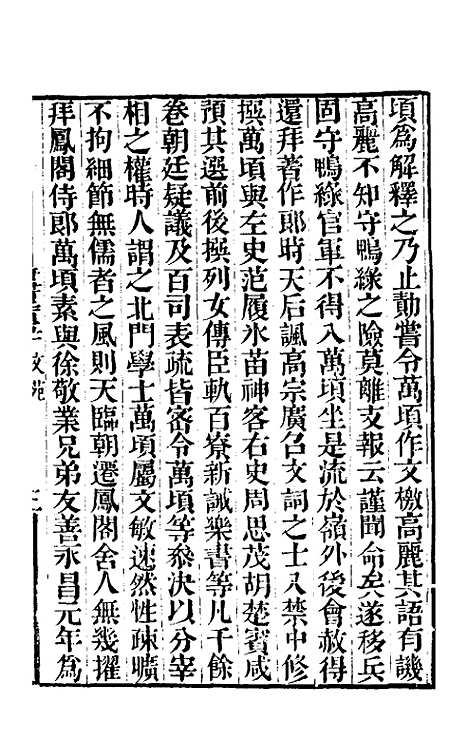 頃爲解釋之乃止勣嘗令萬頃作文檄高麗其語有譏
高麗不知守鴨綠之險莫離支報云謹聞命矣遂移兵
固守鴨綠官軍不得入萬頃坐是流於嶺外後會赦得
還拜著作郎時天后諷高宗廣召文詞之士入禁中修
撰萬頃與左史范履氷苗神客右史周思茂胡楚賓咸
預其選前後撰列女傳臣軌百寮新誡樂書等凡千餘
卷朝廷疑議及百司表疏皆密令萬頃等叅決以分宰
相之權時人謂之北門學士萬頃屬文敏速然性疎曠
不拘細節無儒者之風則天臨朝遷鳳閣舍人無幾擢
拜鳳閣侍郎萬頃素與徐敬業兄弟友善永昌元年爲
文苑